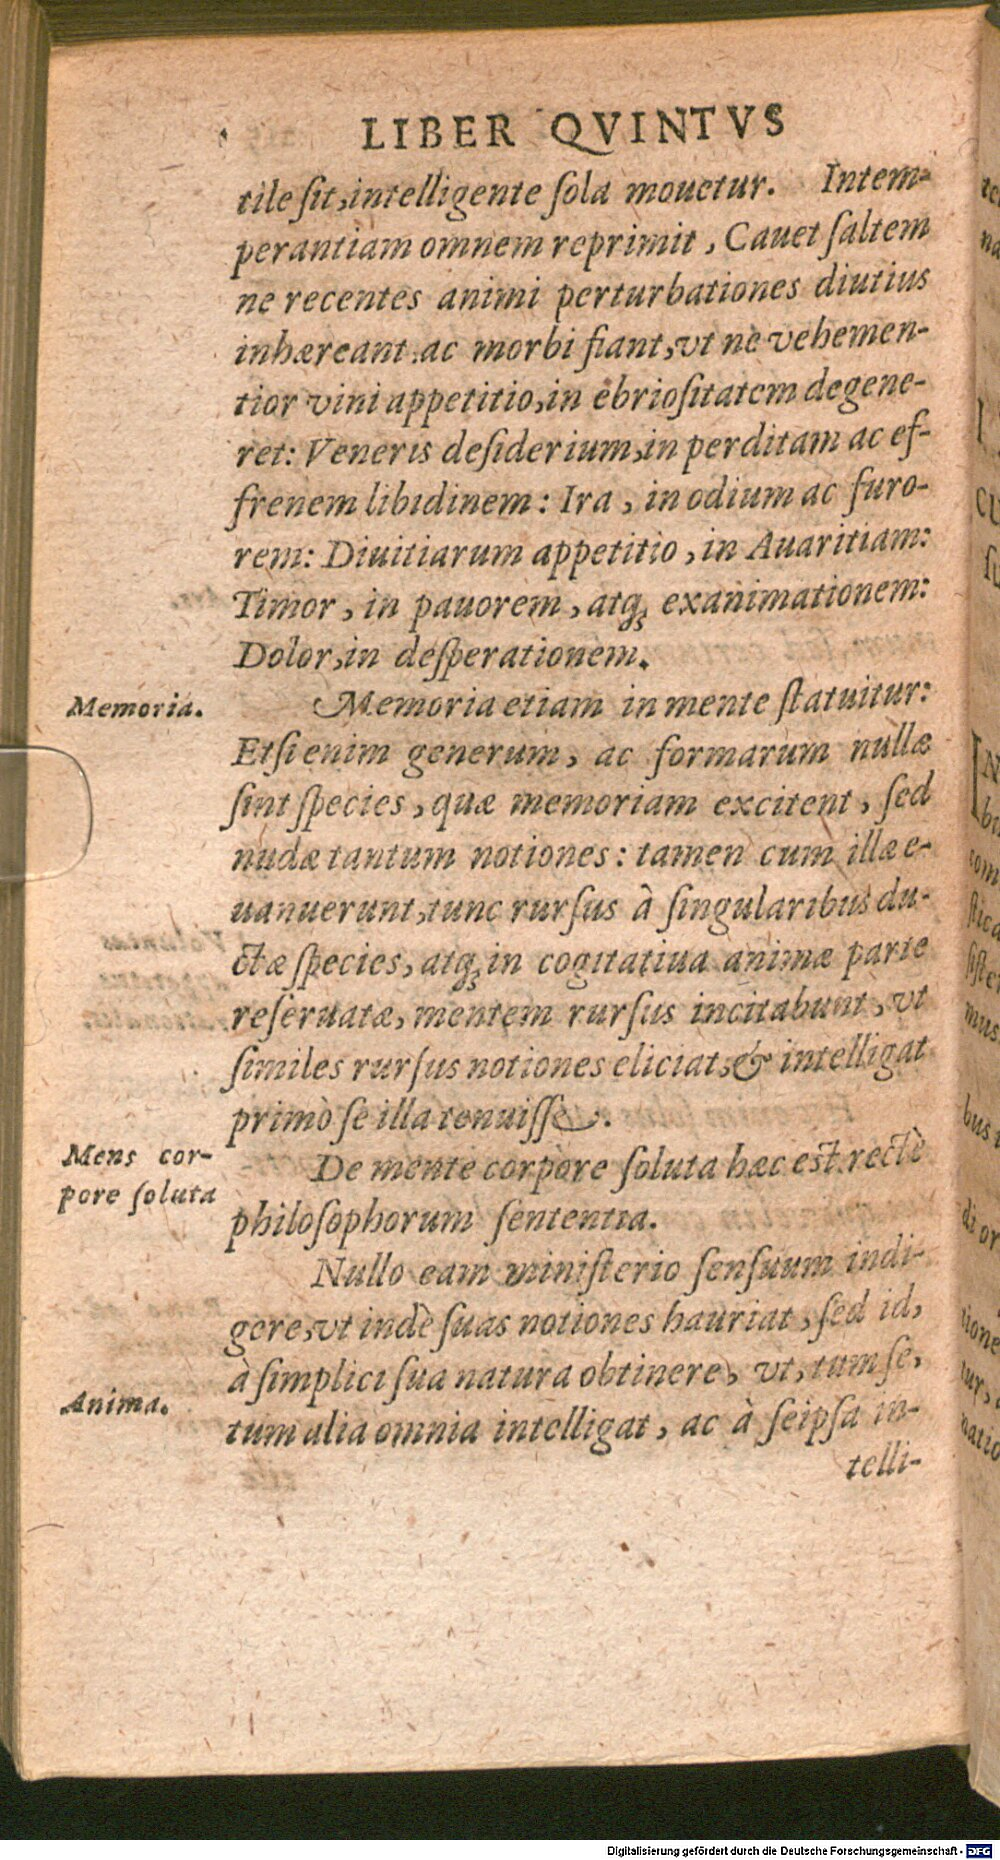 LIBER QVINTVS
tile sit, intelligente sola mouetur. Intem-
perantiam omnem reprimit, Cauet saltem
ne recentes animi perturbationes diutius
inhæreant ac morbi fiant, vt ne vehemen-
tior vini appetitio, in ebriositatem degene-
ret: Veneris desiderium, in perditam ac ef-
frenem libidinem: Ira, in odium ac furo-
rem: Diuitiarum appetitio, in Auaritiam:
Timor, in pauorem, atq; exanimationem:
Dolor, in desperationem.
Memoria.
Memoria etiam in mente statuitur:
Etsi enim generum, ac formarum nullæ
sint species, quæ memoriam excitent, sed
nudæ tantum notiones: tamen cum illæ e-
uanuerunt, tunc rursus à singularibus du-
ctæ species, atq; in cogitatiua animæ parte
reseruatæ, mentem rursus incitabunt, vt
similes rursus notiones eliciat, & intelligat
primò se illa tenuisse.
Mens cor-
pore soluta
De mente corpore soluta hæc est rectè
philosophorum sententia.
Nullo eam ministerio sensuum indi-
gere, vt indè suas notiones hauriat, sed id,
à simplici sua natura obtinere, vt, tum se,
Anima.
tum alia omnia intelligat, ac à seipsa in-
telli-
Digitalisierung gefördert durch die Deutsche Forschungsgemeinschaft - DFG